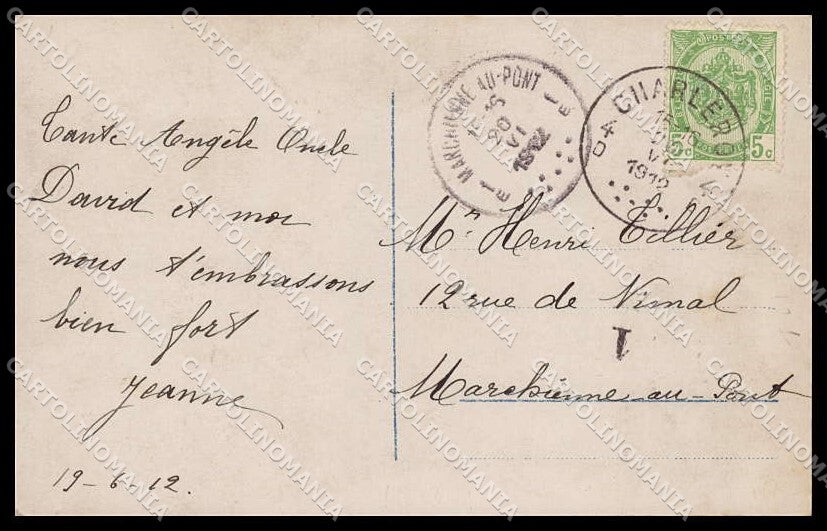 Tante Angèle Oncle
David et moi
nous t'embrassons
bien fort
Jeanne
19-6-12.
MARCHIENNE-AU-PONT
20
VI
1912
CHARLER
VI
1912
POSTES
5c 5c
Mr Henri Tillier
12 rue de Nimal
1
Marchienne-au-Pont
CARTOLINOMANIA